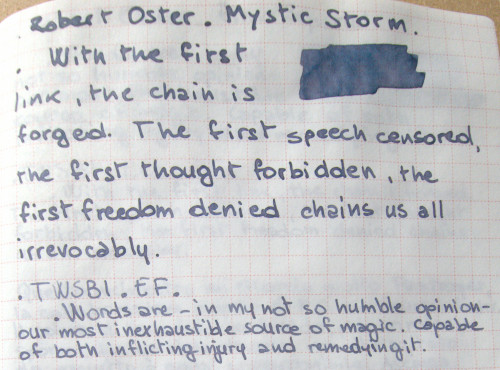 . Robert Oster. Mystic Storm.
. With the first
link, the chain is
forged. The first speech censored,
the first thought forbidden, the
first freedom denied chains us all
irrevocably.
. TWSBI. EF.
. Words are - in my not so humble opinion -
our most inexhaustible source of magic. capable
of both inflicting injury and remedying it.